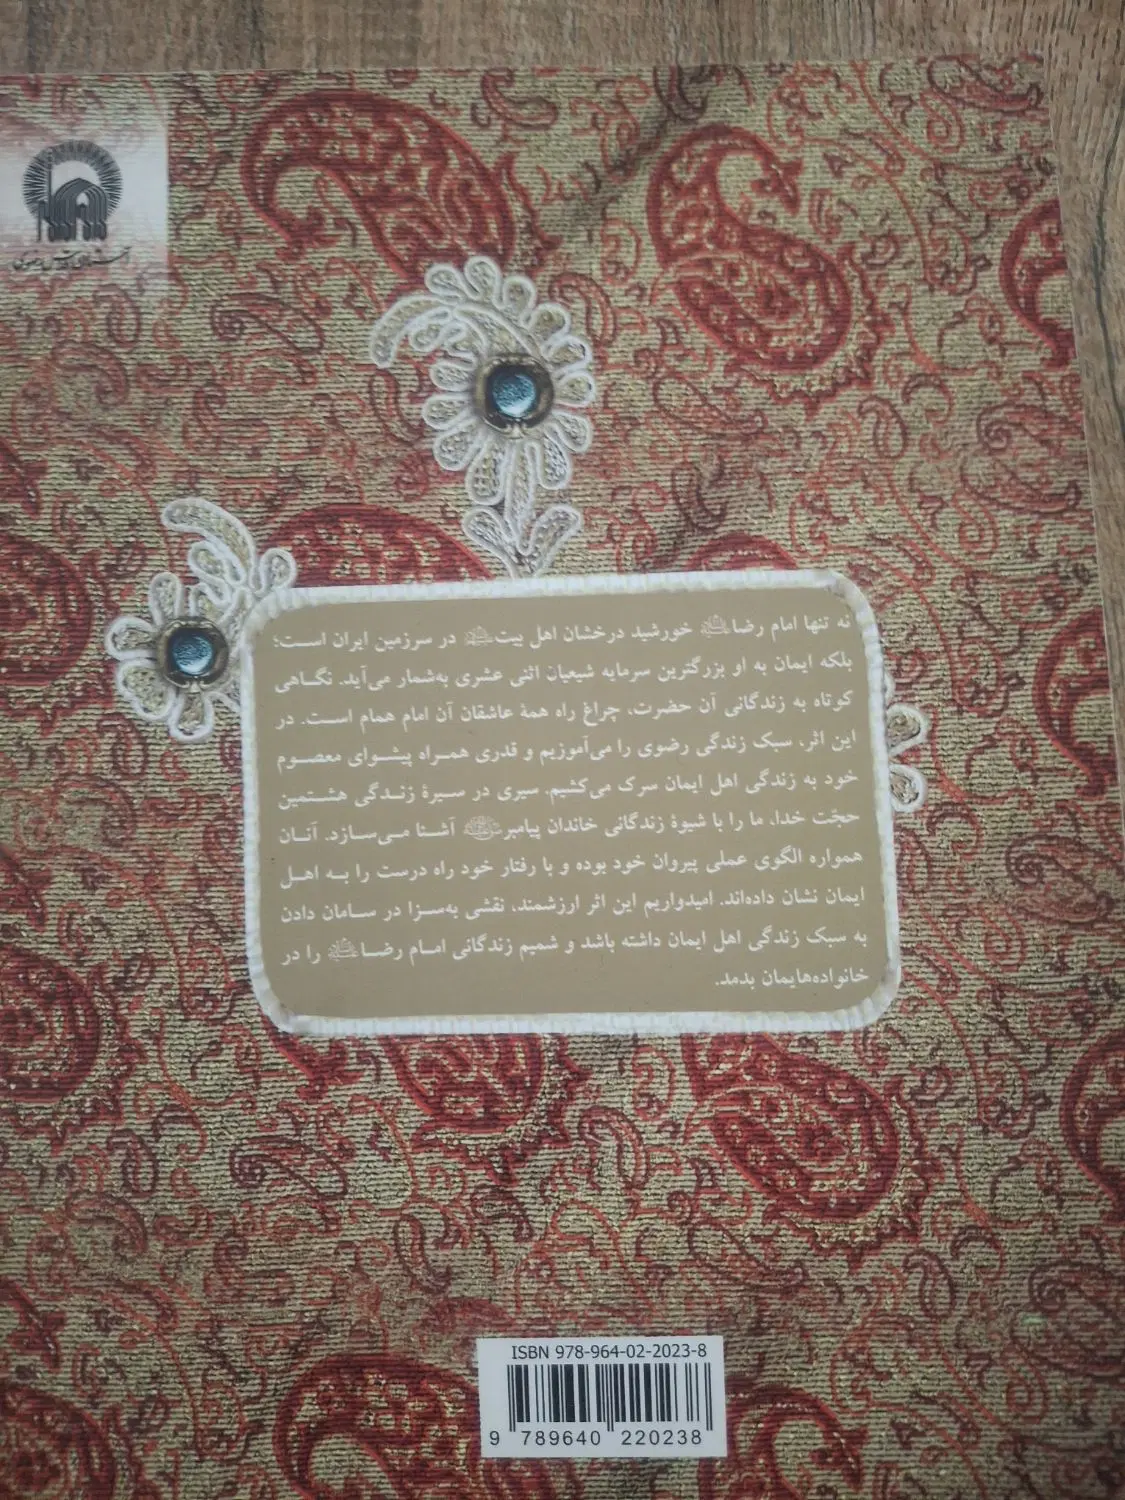 آستان قدس رضوی
نه تنها امام رضا علیه‌السلام خورشید درخشان اهل بیت علیهم‌السلام در سرزمین ایران است؛
بلکه ایمان به او بزرگترین سرمایه شیعیان اثنی عشری به‌شمار می‌آید. نگاهی
کوتاه به زندگانی آن حضرت، چراغ راه همهٔ عاشقان آن امام همام است. در
این اثر، سبک زندگی رضوی را می‌آموزیم و قدری همراه پیشوای معصوم
خود به زندگی اهل ایمان سرک می‌کشیم. سیری در سیرهٔ زندگی هشتمین
حجّت خدا، ما را با شیوهٔ زندگانی خاندان پیامبر آشنا می‌سازد. آنان
همواره الگوی عملی پیروان خود بوده و با رفتار خود راه درست را به اهل
ایمان نشان داده‌اند. امیدواریم این اثر ارزشمند، نقشی به‌سزا در سامان دادن
به سبک زندگی اهل ایمان داشته باشد و شمیم زندگانی امام رضا علیه‌السلام را در
خانواده‌هایمان بدمد.
ISBN 978-964-02-2023-8
9 789640 220238